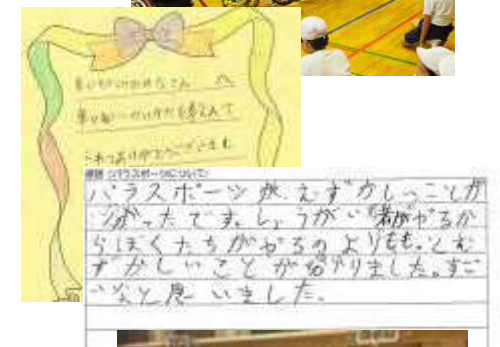 車いすの
くれてありがとうございます
感想(パラスポーツについて)
パラスポーツが、むずかしいことが
分かったです。しょうがい者がやるか
らぼくたちがやるのよりももっとむ
ずかしいことが分かりました。すご
いなと思いました。